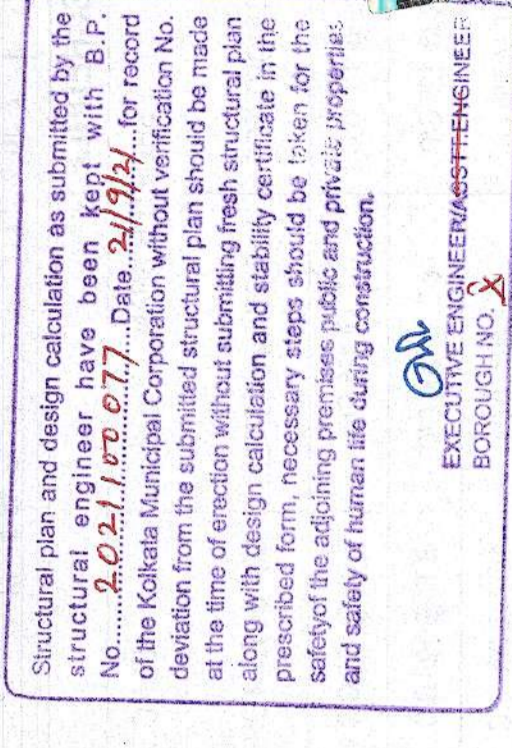 Structural plan and design calculation as submitted by the
structural engineer have been kept with B.P.
No.....2021100077.....Date.21/9/21....for record
of the Kolkata Municipal Corporation without verification No.
deviation from the submitted structural plan should be made
at the time of erection without submitting fresh structural plan
along with design calculation and stability certificate in the
prescribed form, necessary steps should be taken for the
safetyof the adjoining premises public and private properties
and safety of human life during construction.
EXECUTIVE ENGINEER/ASSTT.ENGINEER
BOROUGH NO. X